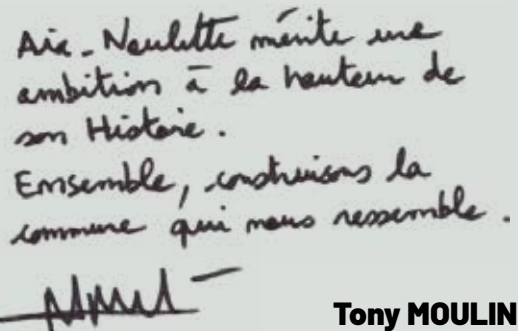 Aix-Noulette mérite une
ambition à la hauteur de
son Histoire.
Ensemble, construisons la
commune qui nous ressemble.
Tony MOULIN